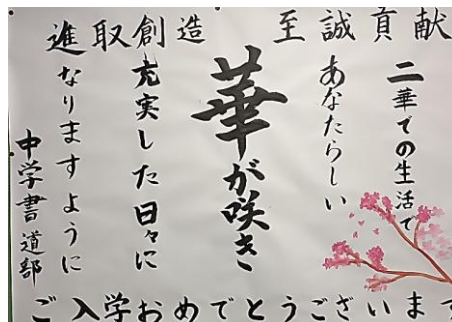 進取創造 至誠貢献
二華での生活で
あなたらしい
華が咲き
充実した日々に
なりますように
中学書道部
ご入学おめでとうございます